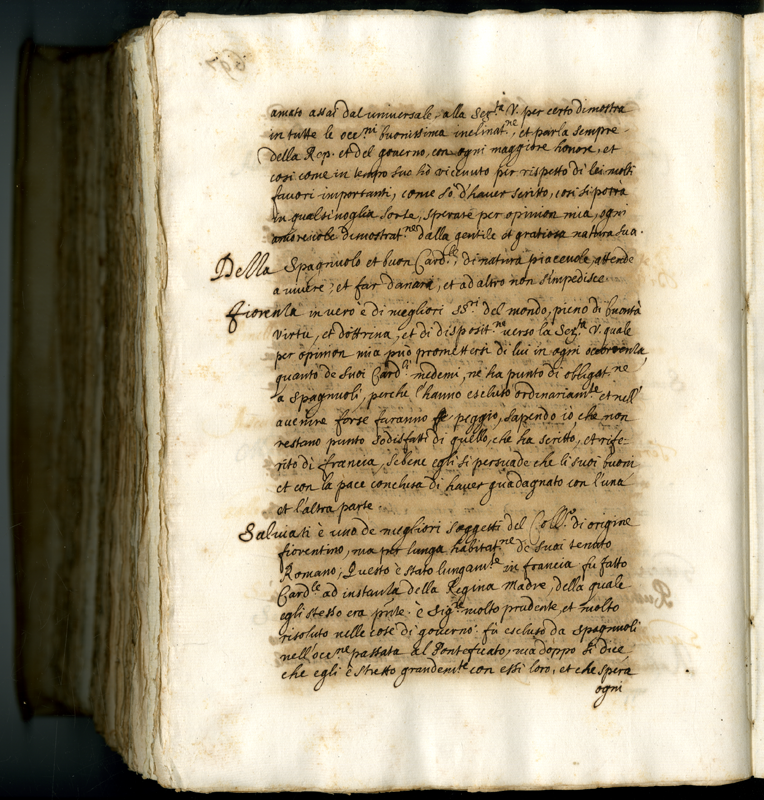 amato assai dal universale, alla Ser.ta V. per certo dimostra
in tutte le occ.ni buonissima inclinat.ne, et parla sempre
della Rep. et del governo, con ogni maggiore honore, et
cosi come in tempo suo hò ricevuto per rispetto di lei molti
favori importanti, come sò d'haver scritto, cosi si potrà
in qualsivoglia sorte, sperare per opinion mia, ogni
amorevole dimostrat.ne dalla gentile et gratiosa natura sua.
Della Spagnuolo et buon Card.le, di natura piacevole, attende
a vivere, et far danari, et ad altro non s'impedisce.
fiorenza in vero è di megliori SS.ri del mondo, pieno di bontà
virtù, et dottrina, et di disposit.ne verso la Ser.ta V. quale
per opinion mia può promettersi di lui in ogni
quanto de suoi Card.li medemi, ne ha punto di obligat.ne
a Spagnuoli, perche l'hanno escluso ordinariam.te et nell'
avenire forse faranno peggio, sapendo io, che non
restano punto sodisfatti di quello, che ha scritto, et rife-
rito di francia, sebene egli si persuade che li suoi buoni
et con la pace conclusa di haver guadagnato con l'una
et l'altra parte.
Salviati è uno de megliori soggetti del Coll.o di origine
fiorentino, ma per lunga habitat.ne de suoi tenuto
Romano, Questo è stato lungam.te in francia fù fatto
Card.le ad instanza della Regina Madre, della quale
egli stesso era pnte. è Sig.re molto prudente, et molto
risoluto nelle cose di governo. fù escluso da Spagnuoli
nell'occ.ne passata al Pontificato, ma doppo si dice
che egli è stretto grandem.te con essi loro, et che spera
ogni